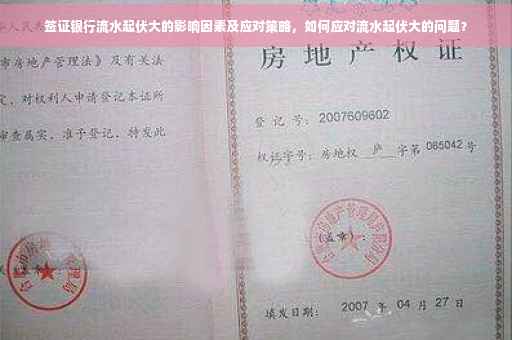 签证银行流水起伏大的影响因素及应对策略，如何应对流水起伏大的问题？
市房地产管理法》及有关法
定，对权利人申请登记本证所
审查属实，准予登记，特发此
房地产权证
登记号：2007609602
权证字号：房地权 庐 字第 065042 号
（盖章）：
填发日期： 2007 年 04 月 27 日